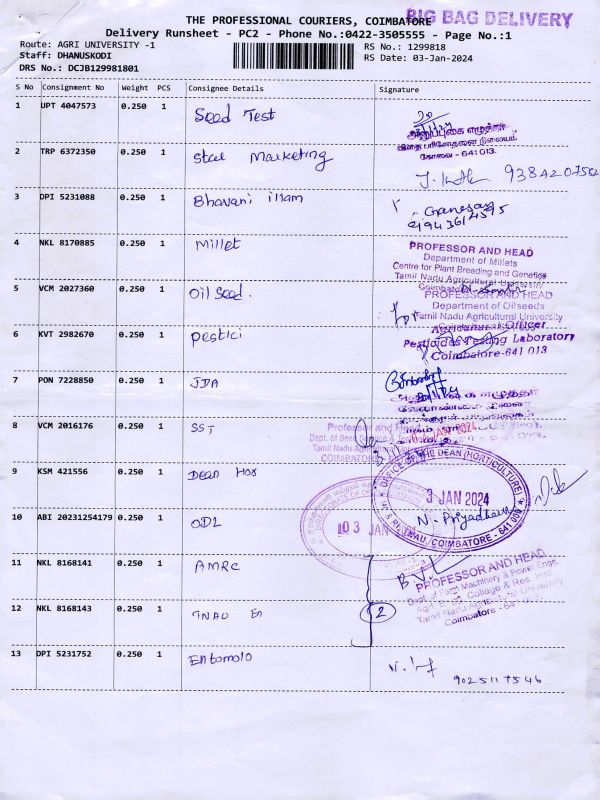 THE PROFESSIONAL COURIERS, COIMBATORE
BIG BAG DELIVERY
Delivery Runsheet - PC2 - Phone No.:0422-3505555 - Page No.:1
Route: AGRI UNIVERSITY -1
RS No.: 1299818
Staff: DHANUSKODI
RS Date: 03-Jan-2024
DRS No.: DCJB129981801
S No Consignment No Weight PCS Consignee Details Signature
1 UPT 4047573 0.250 1 Seed Test
கோவை - 641 013.
2 TRP 6372350 0.250 1 Stal Marketing
9384207502
3 DPI 5231088 0.250 1 Bhavani illam
Ganesan
4 NKL 8170885 0.250 1 Millet
PROFESSOR AND HEAD
Department of Millets
Centre for Plant Breeding and Genetics
Tamil Nadu Agricultural University
5 VCM 2027360 0.250 1 Oil Seed.
PROFESSOR AND HEAD
Department of Oilseeds
For Tamil Nadu Agricultural University
6 KVT 2982670 0.250 1 Pestici
Agricultural Officer
Pesticides Testing Laboratory
Coimbatore-641 013
7 PON 7228850 0.250 1 JDA
8 VCM 2016176 0.250 1 SST
Professor and Head
Dept. of Seed Science &
Tamil Nadu Agricultural
COIMBATORE
JAN 2024
9 KSM 421556 0.250 1 Dean Hor
OFFICE OF THE DEAN (HORTICULTURE)
3 JAN 2024
N. Priyadhars
TNAU, COIMBATORE - 641 003
10 ABI 20231254179 0.250 1 ODL
03 JAN
11 NKL 8168141 0.250 1 AMRC
PROFESSOR AND HEAD
Dept. of Farm Machinery & Power Engg.
Agrl. Engg. College & Res. Inst.
Tamil Nadu Agricultural University
Coimbatore -
12 NKL 8168143 0.250 1 TNAU En
2
13 DPI 5231752 0.250 1 Entomolo
9025117546